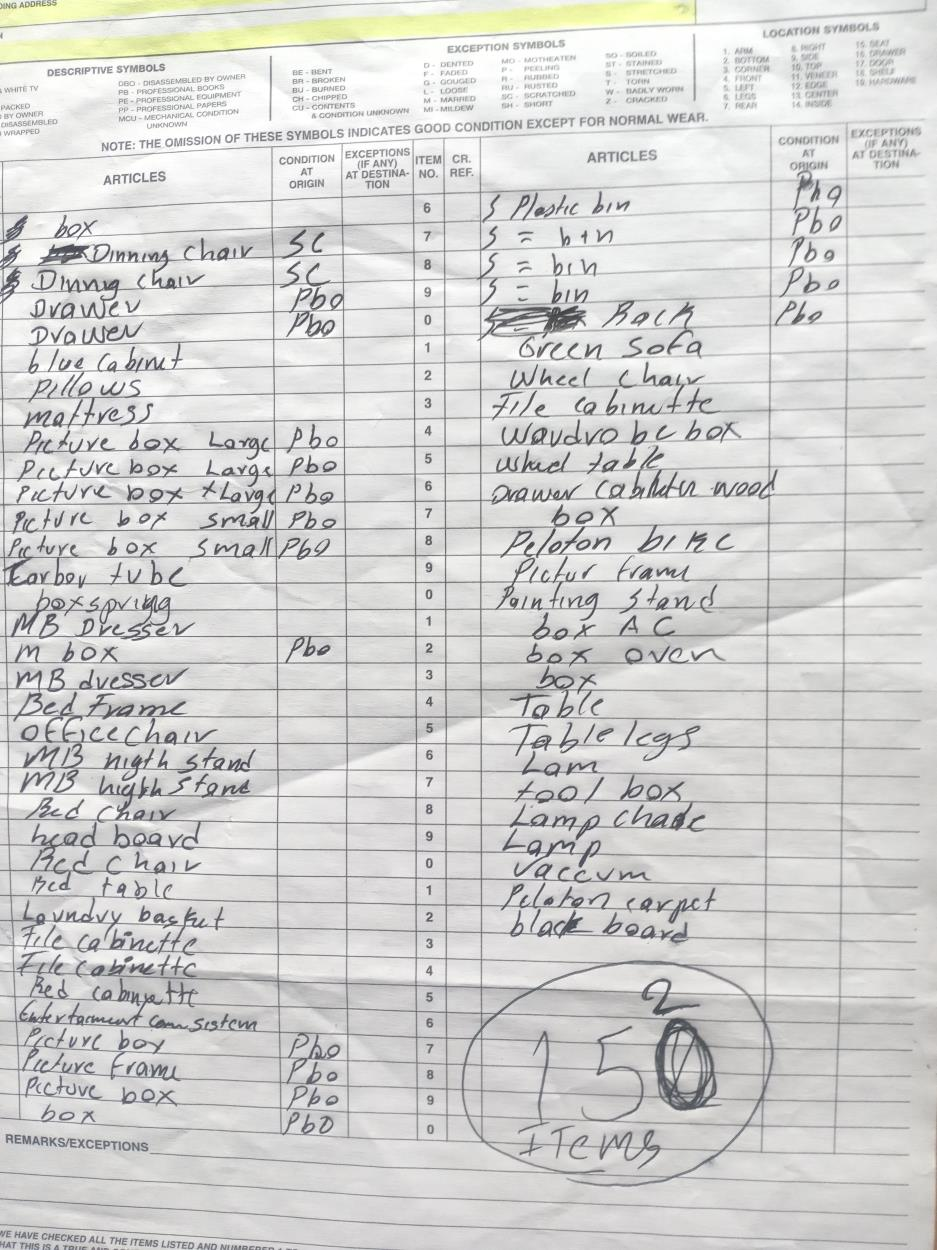 DING ADDRESS
DESCRIPTIVE SYMBOLS
WHITE TV
PACKED
BY OWNER
DISASSEMBLED
WRAPPED
DBO - DISASSEMBLED BY OWNER
PB - PROFESSIONAL BOOKS
PE - PROFESSIONAL EQUIPMENT
PP - PROFESSIONAL PAPERS
MCU - MECHANICAL CONDITION
UNKNOWN
EXCEPTION SYMBOLS
BE - BENT
BR - BROKEN
BU - BURNED
CH - CHIPPED
CU - CONTENTS
& CONDITION UNKNOWN
D - DENTED
F - FADED
G - GOUGED
L - LOOSE
M - MARRED
MI - MILDEW
MO - MOTHEATEN
P - PEELING
R - RUBBED
RU - RUSTED
SC - SCRATCHED
SH - SHORT
SO - SOILED
ST - STAINED
S - STRETCHED
T - TORN
W - BADLY WORN
Z - CRACKED
LOCATION SYMBOLS
1. ARM
2. BOTTOM
3. CORNER
4. FRONT
5. LEFT
6. LEGS
7. REAR
8. RIGHT
9. SIDE
10. TOP
11. VENEER
12. EDGE
13. CENTER
14. INSIDE
15. SEAT
16. DRAWER
17. DOOR
18. SHELF
19. HARDWARE
NOTE: THE OMISSION OF THESE SYMBOLS INDICATES GOOD CONDITION EXCEPT FOR NORMAL WEAR.
ARTICLES
CONDITION AT ORIGIN
EXCEPTIONS (IF ANY) AT DESTINA-TION
ITEM NO.
CR. REF.
ARTICLES
CONDITION AT ORIGIN
EXCEPTIONS (IF ANY) AT DESTINA-TION
box
Dinning chair SC
Dinnig chair SC
Drawer Pbo
Drawer Pbo
blue cabinet
Pillows
mattress
Picture box Large Pbo
Picture box Large Pbo
Picture box xLarge Pbo
Picture box small Pbo
Picture box small Pbo
tube
boxspring
MB Dresser
M box Pbo
MB dresser
Bed Frame
officechair
MB nigth stand
MB nigth stand
Red chair
head board
Red chair
Red table
Laundry basket
File cabinette
File cabinette
Red cabinette
Entertarment sistem
Picture box Pbo
Picture Frame Pbo
Picture box Pbo
box Pbo
6 S Plastic bin Pbo
7 S = bin Pbo
8 S = bin Pbo
9 S = bin Pbo
0 Rack Pbo
1 Green sofa
2 Wheel chair
3 File cabinette
4 wardrobe box
5 table
6 Drawer wood
7 box
8 Peloton bike
9 Pictur frame
0 Painting stand
1 box AC
2 box oven
3 box
4 Table
5 Table legs
6 Lam
7 tool box
8 Lamp chade
9 Lamp
0 vaccum
1 Peloton carpet
2 black board
3
4
5
6
7
8
9
0
2
150
ITems
REMARKS/EXCEPTIONS
WE HAVE CHECKED ALL THE ITEMS LISTED AND NUMBERED 1